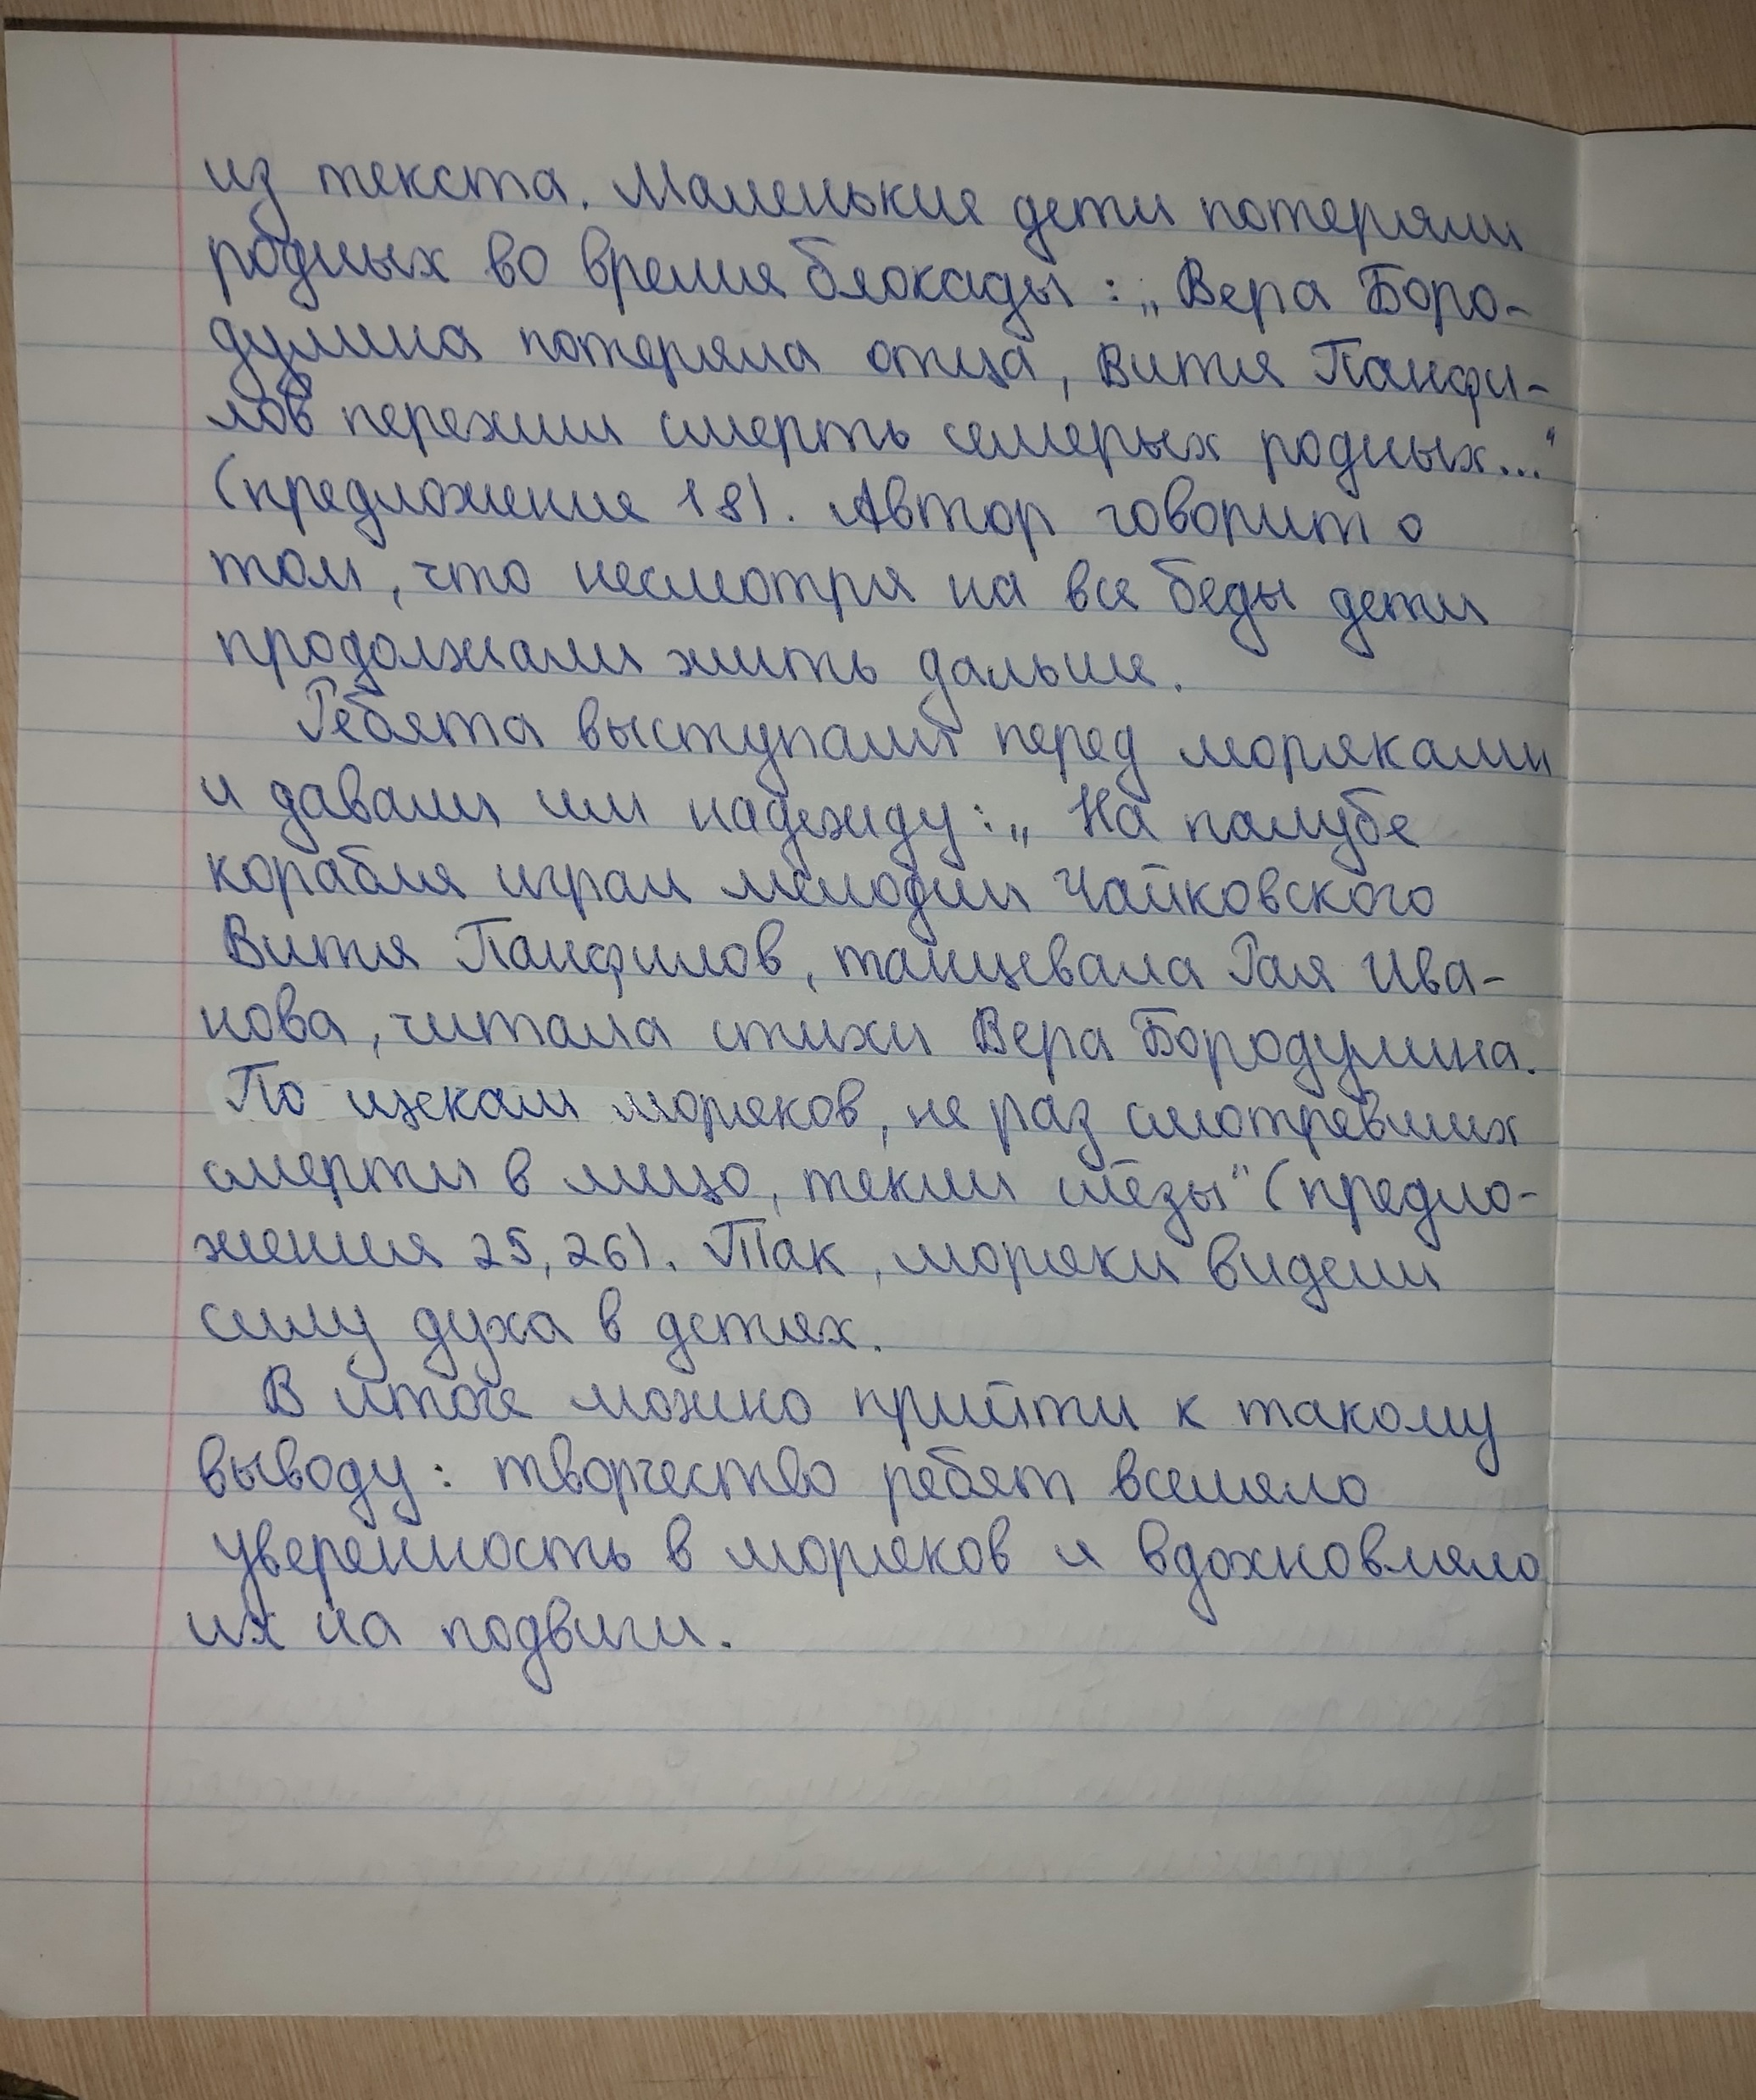 из текста. Маленькие дети потеряли
родных во время блокады: „Вера Боро-
дулина потеряла отца, Витя Панфи-
лов пережил смерть семерых родных..."
(предложение 18). Автор говорит о
том, что несмотря на все беды дети
продолжали жить дальше.
Ребята выступали перед моряками
и давали им надежду: „На палубе
корабля играл мелодии Чайковского
Витя Панфилов, танцевала Рая Ива-
нова, читала стихи Вера Бородулина.
По щекам моряков, не раз смотревших
смерти в лицо, текли слёзы" (предло-
жения 25, 26). Так, моряки видели
силу духа в детях.
В итоге можно прийти к такому
выводу: творчество ребят вселяло
уверенность в моряков и вдохновляло
их на подвиги.